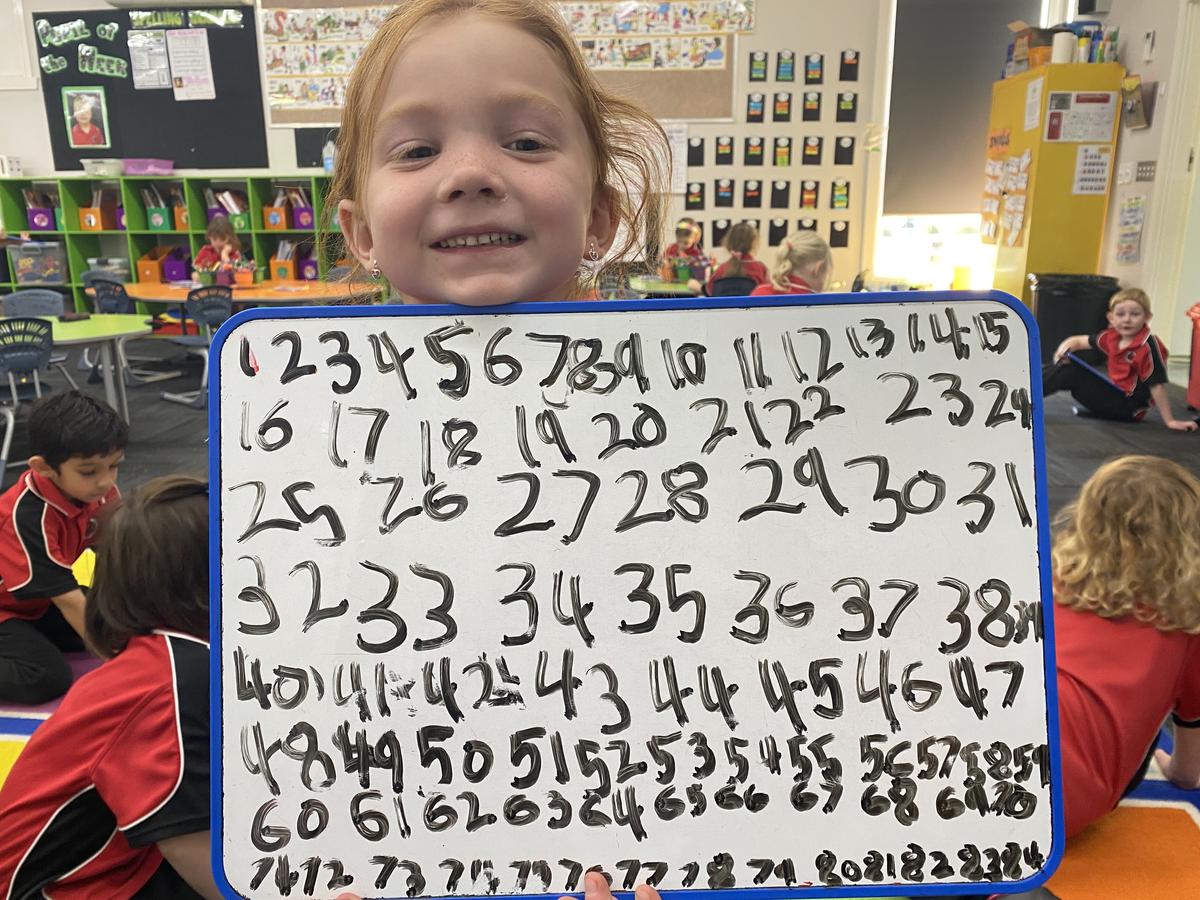 Pupil of
the Week
1 2 3 4 5 6 7 8 9 10 11 12 13 14 15
16 17 18 19 20 21 22 23 24
25 26 27 28 29 30 31
32 33 34 35 36 37 38 39
40 41 42 43 44 45 46 47
48 49 50 51 52 53 54 55 56 57 58 59
60 61 62 63 64 65 66 67 68 69 70
71 72 73 74 79 76 77 78 79 80 81 82 83 84